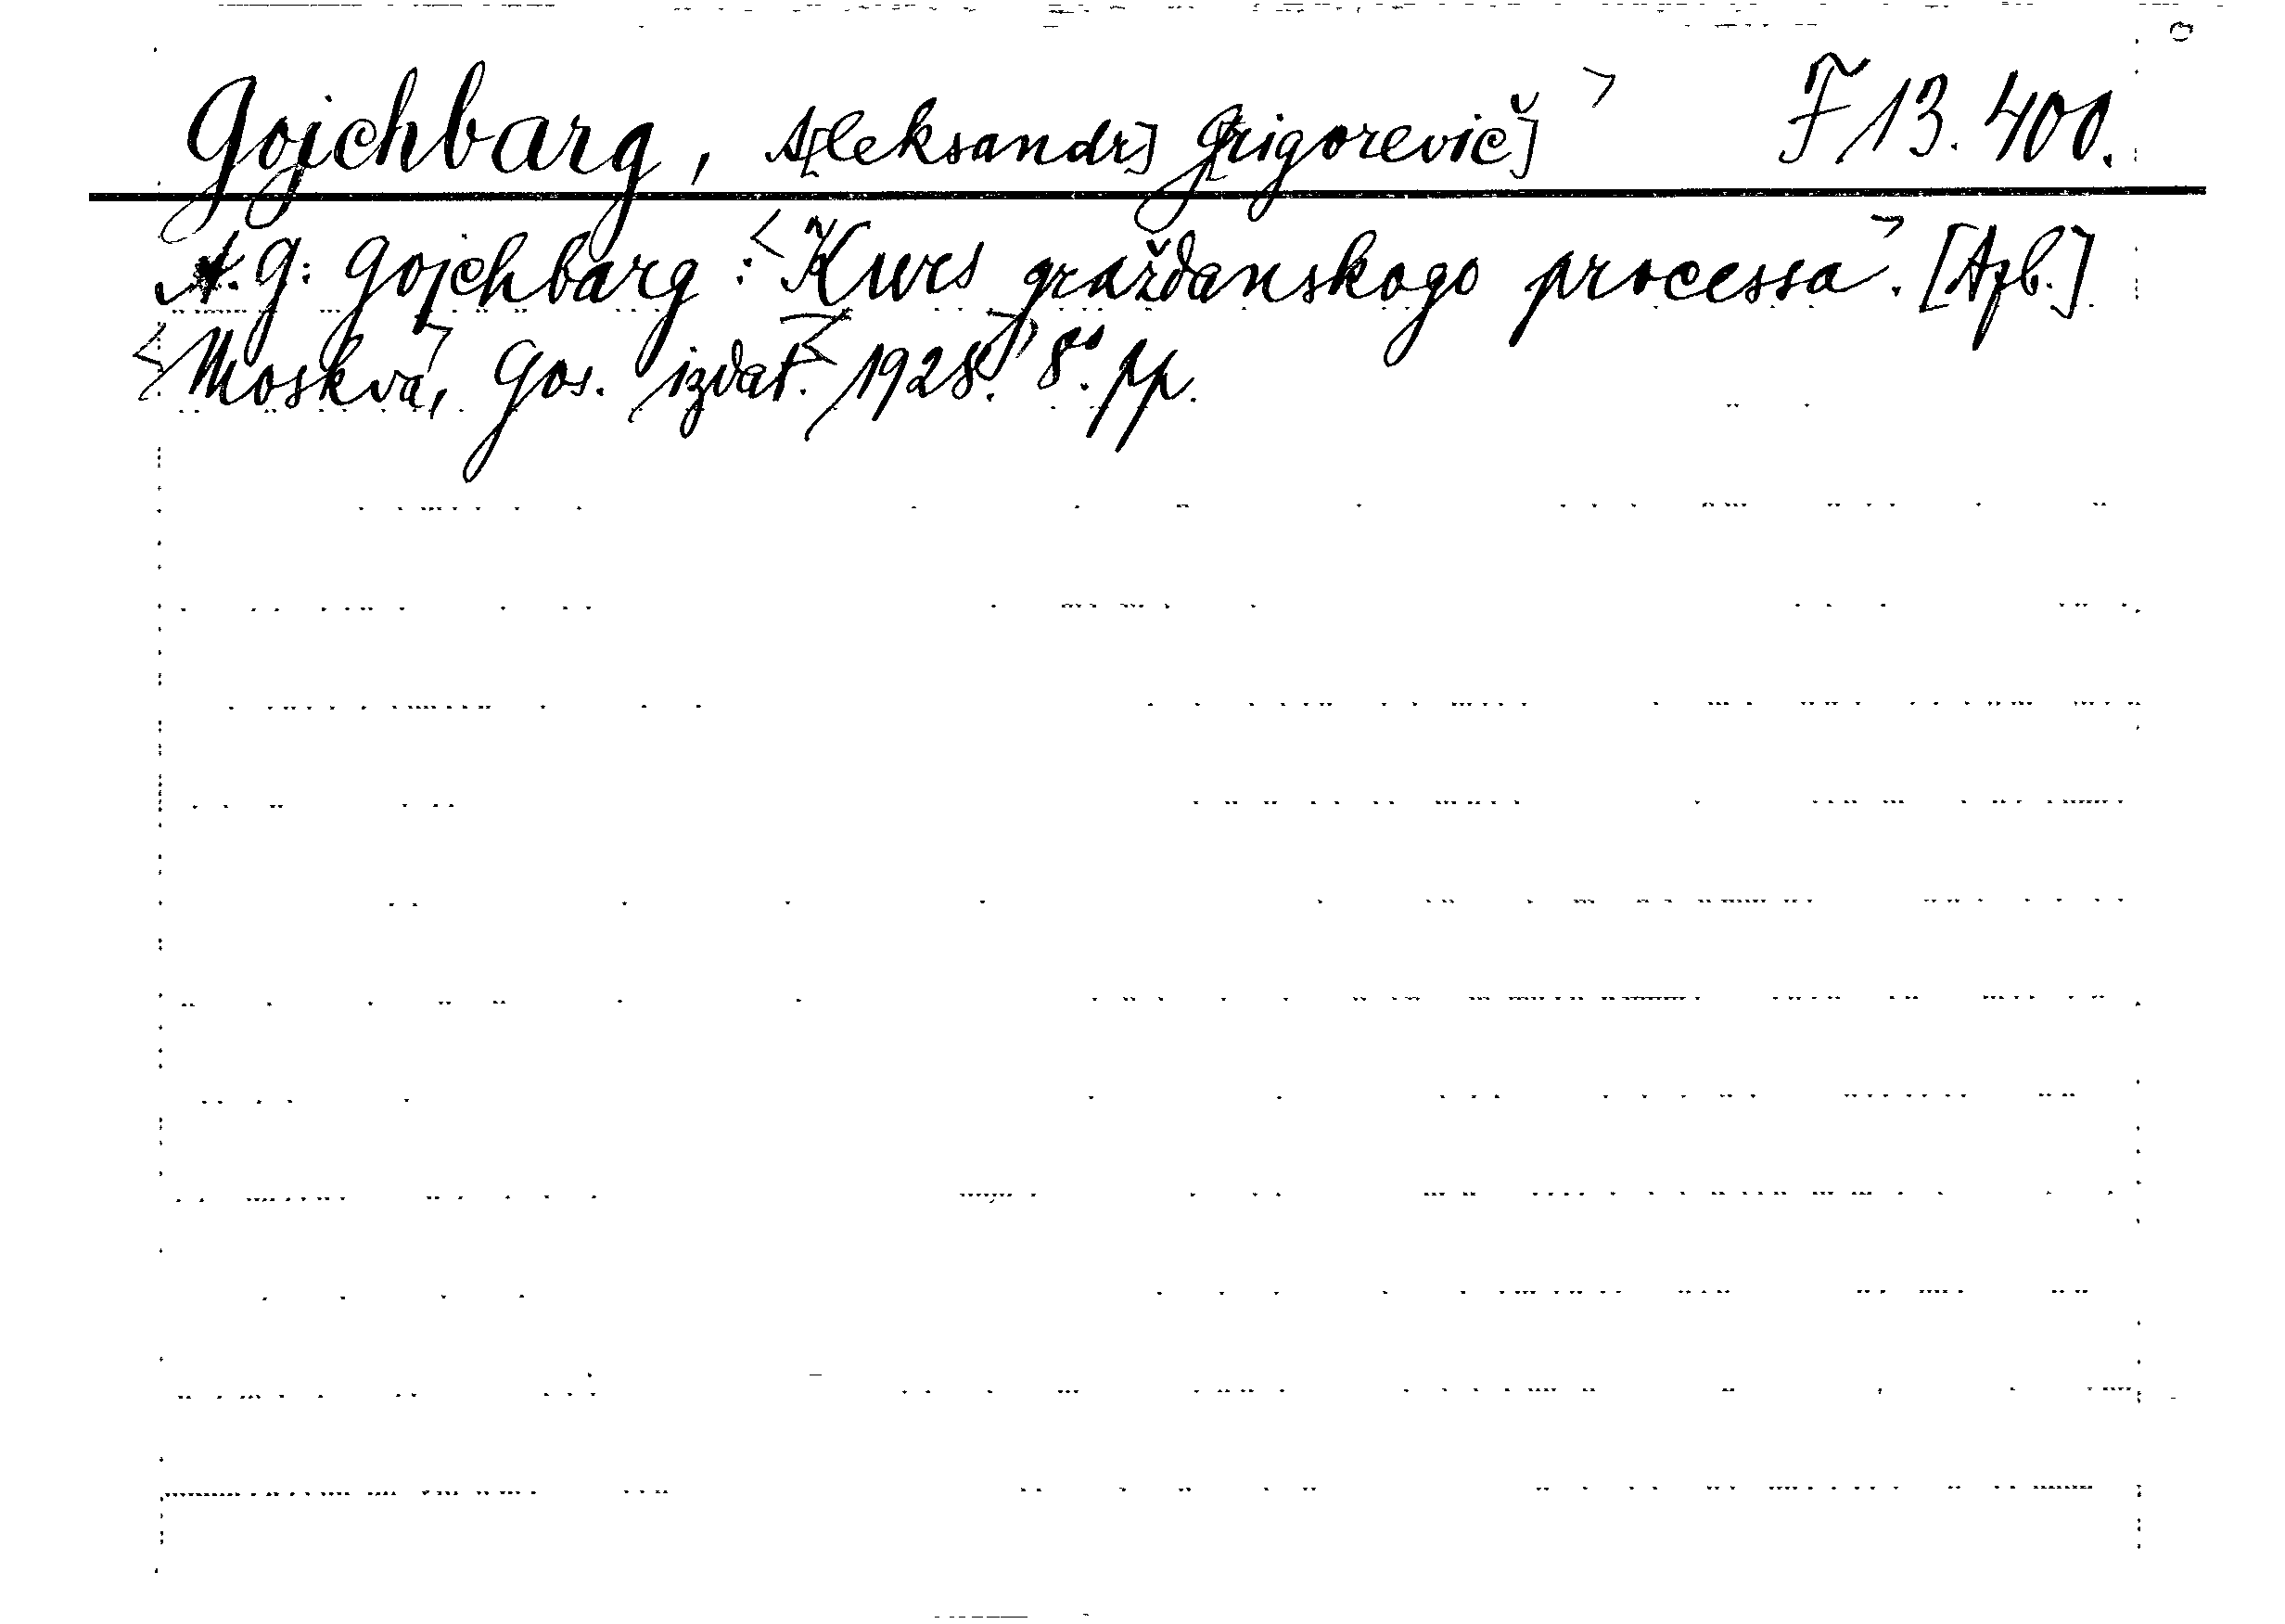 Gojchbarg, A[leksandr] G[rigorevič] > F 13.400.
A. G. Gojchbarg: <Kurs graždanskogo processa>. [Afb.]
<Moskva>, Gos. izdat. <1928.> 8°. pp.